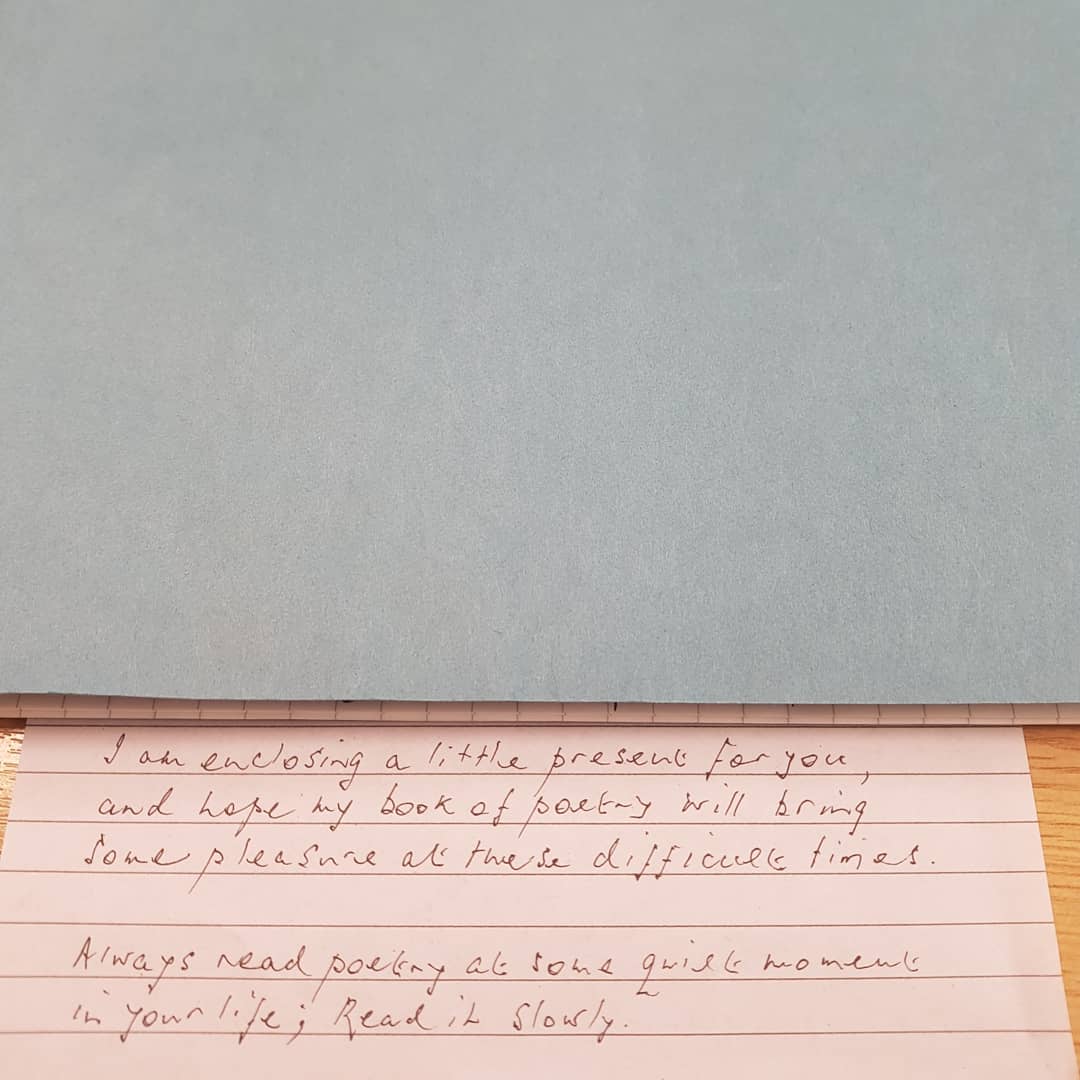 I am enclosing a little present for you,
and hope my book of poetry will bring
some pleasure at these difficult times.
Always read poetry at some quiet moment
in your life; Read it slowly.